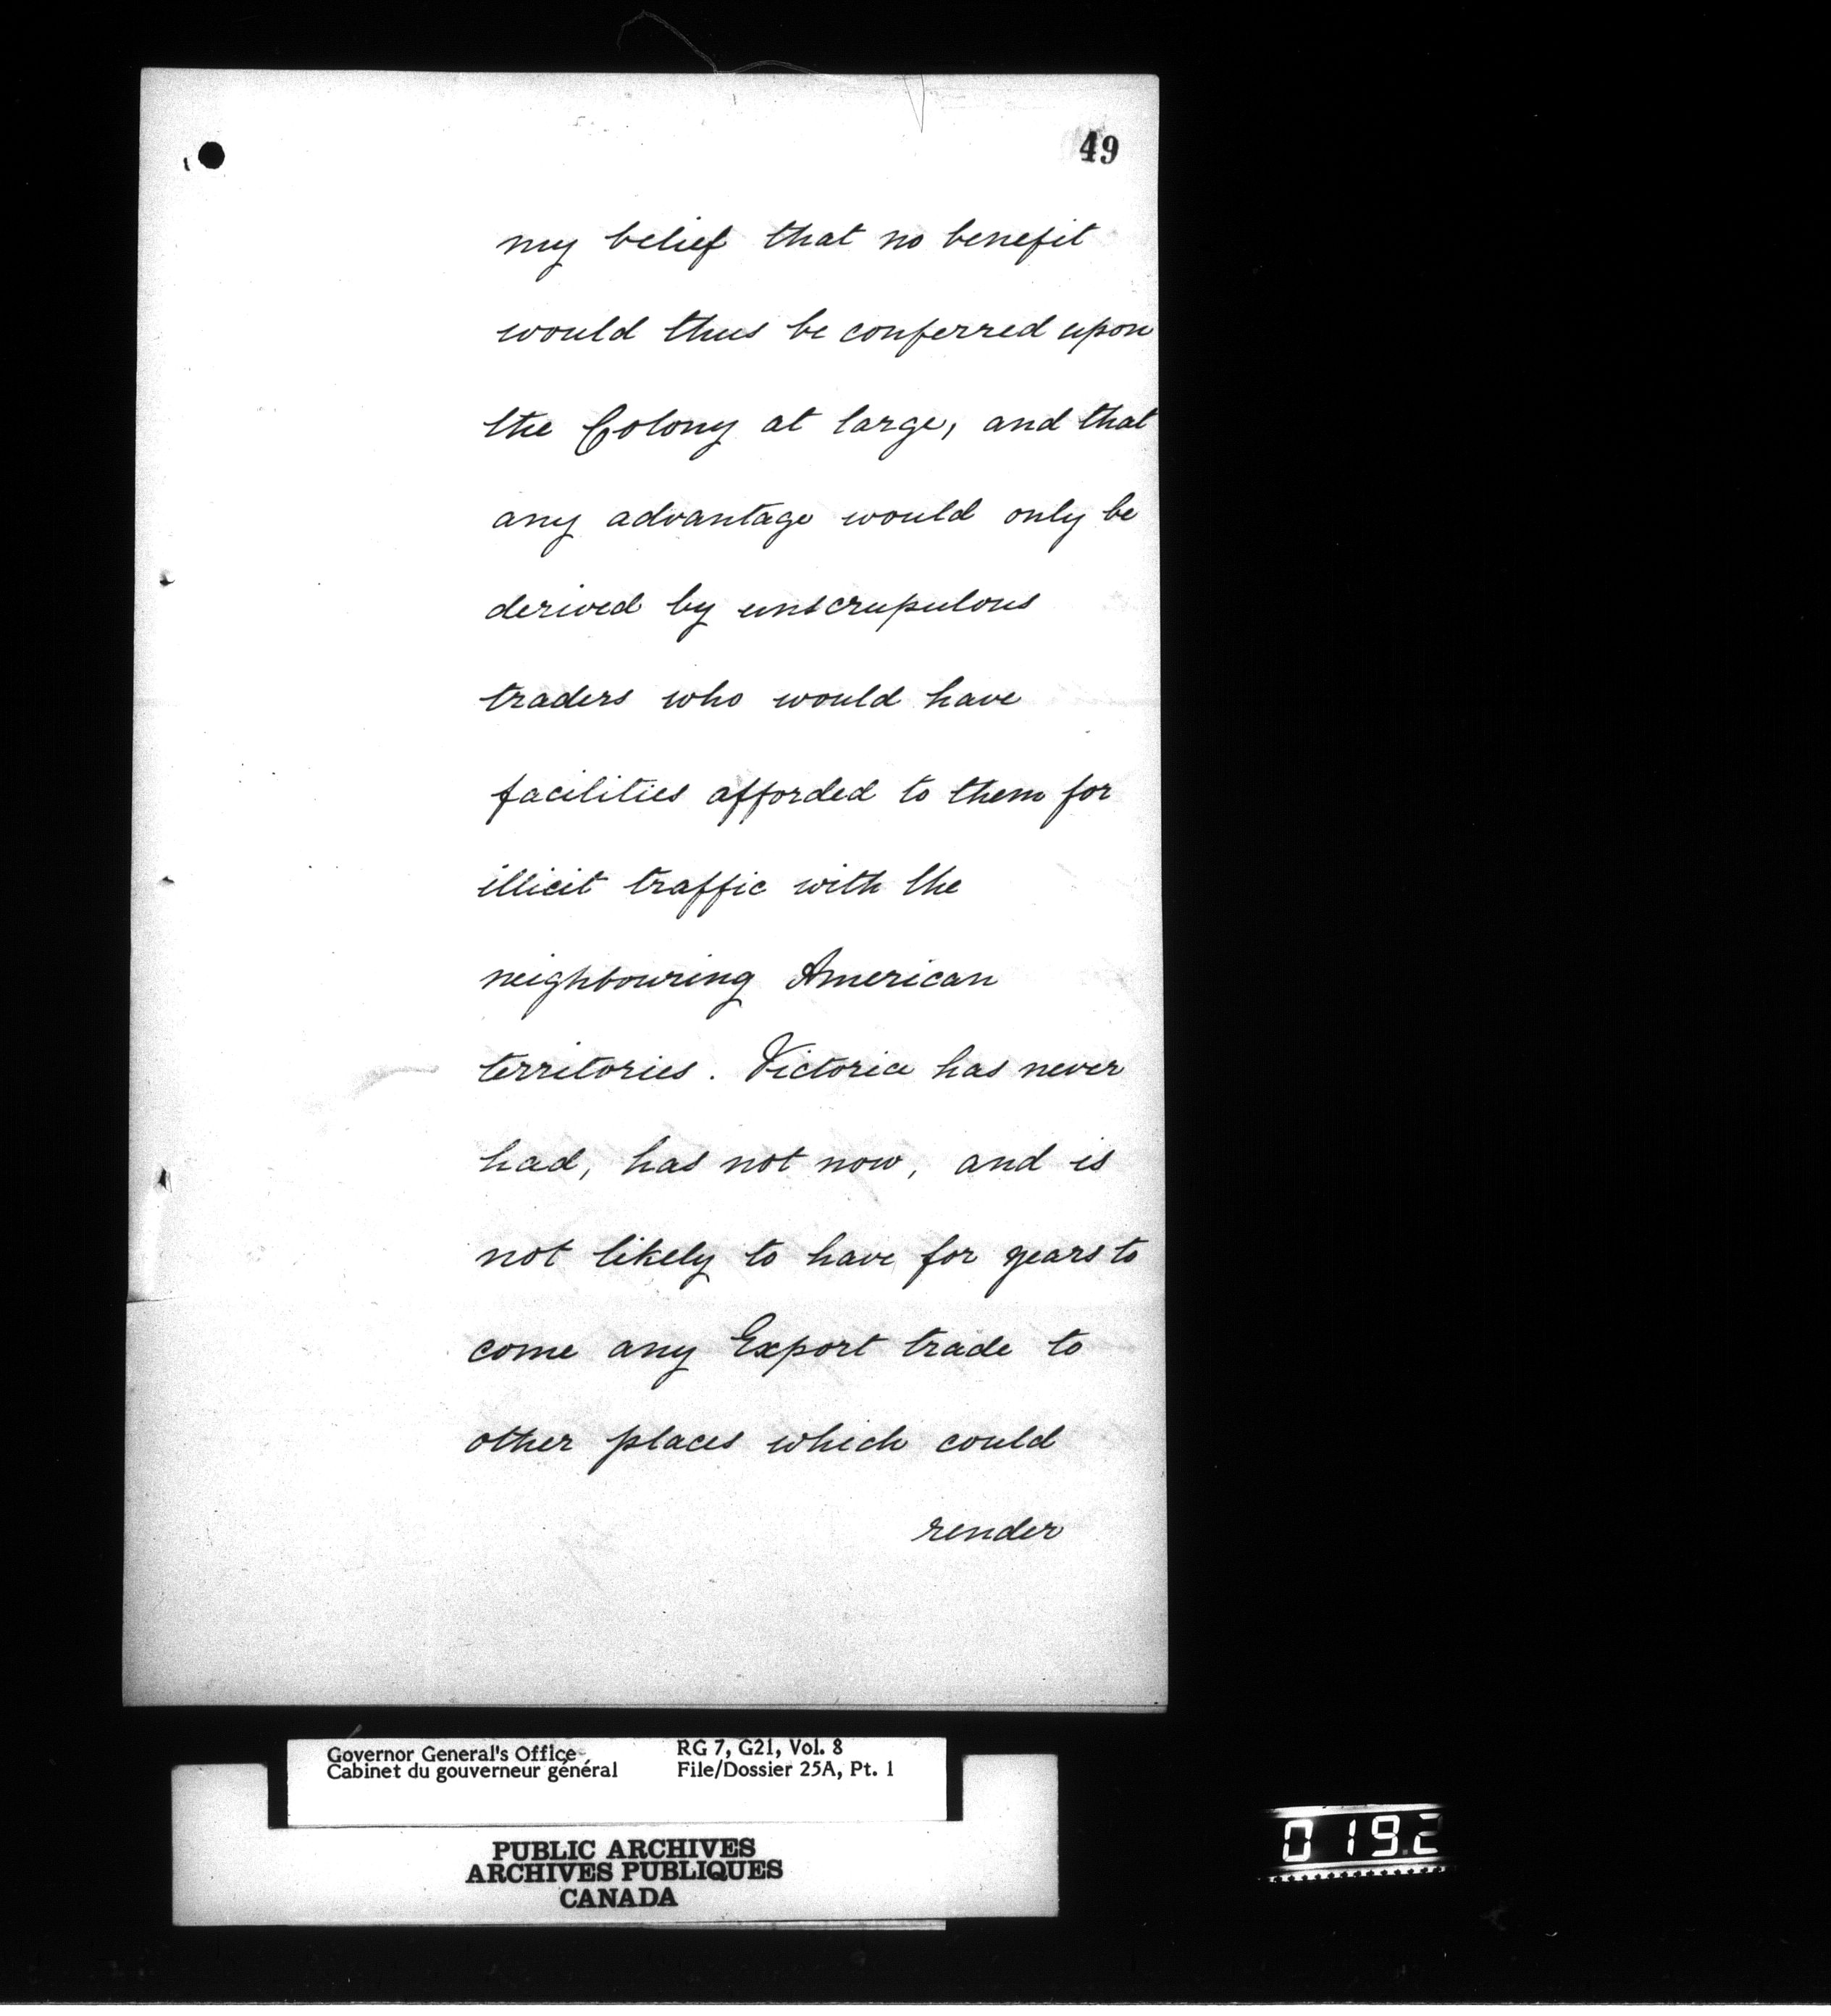 49
my belief that no benefit
would thus be conferred upon
the Colony at large, and that
any advantage would only be
derived by unscrupulous
traders who would have
facilities afforded to them for
illicit traffic with the
neighbouring American
territories. Victoria has never
had, has not now, and is
not likely to have for years to
come any Export trade to
other places which could
render
Governor General's Office
Cabinet du gouverneur général
RG 7, G21, Vol. 8
File/Dossier 25A, Pt. 1
PUBLIC ARCHIVES
ARCHIVES PUBLIQUES
CANADA
019.2